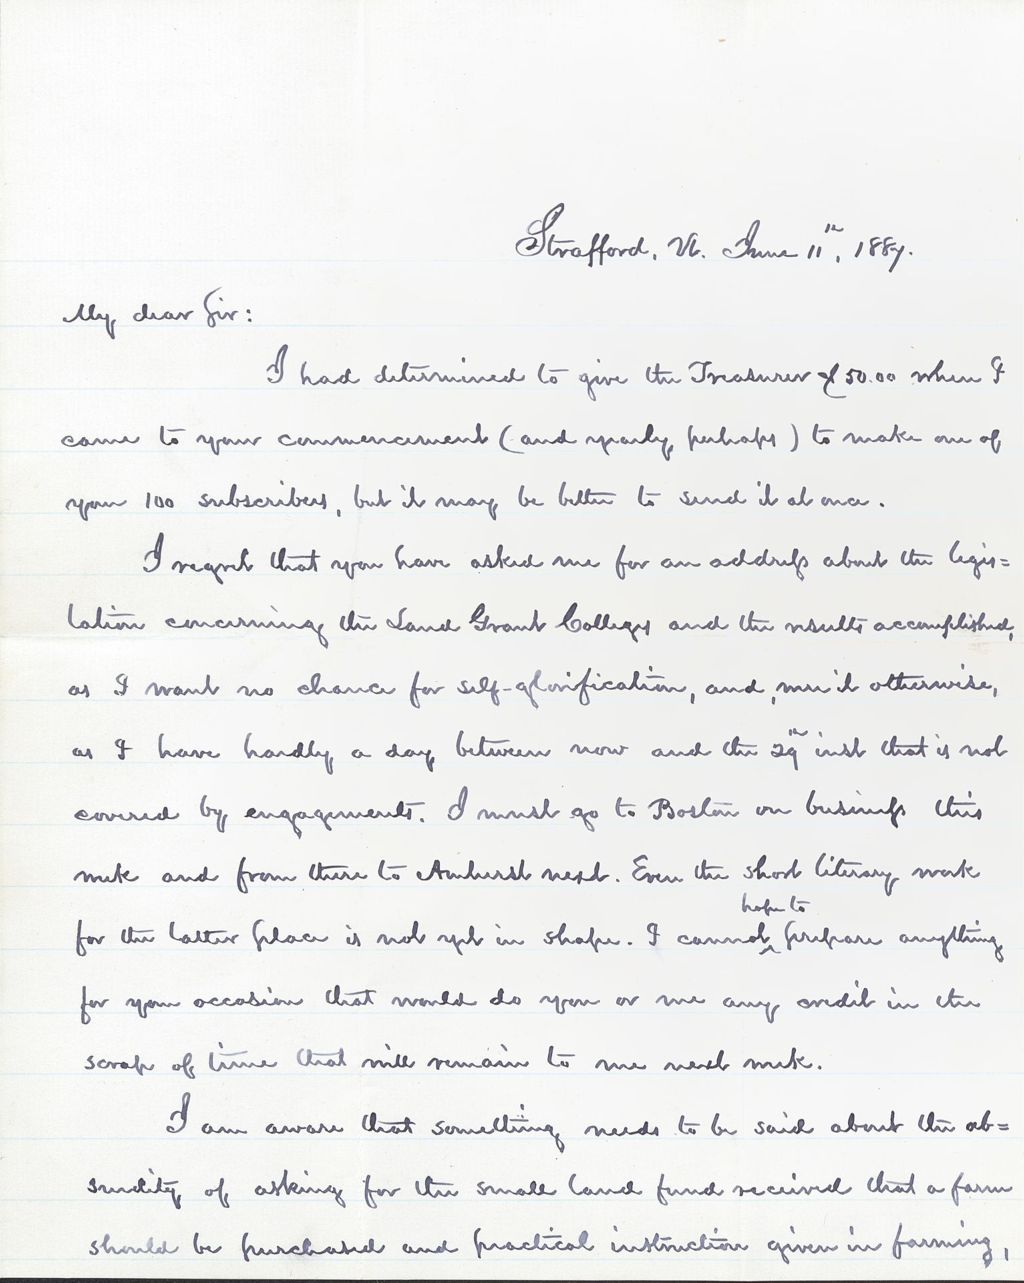 Strafford, Vt. June 11th, 1887.
My dear Sir:
I had determined to give the Treasurer $50.00 when I
come to your commencement (and yearly, perhaps) to make one of
your 100 subscribers, but it may be better to send it at once.
I regret that you have asked me for an address about the legis=
lation concerning the Land Grant Colleges and the results accomplished,
as I want no chance for self-glorification, and, were it otherwise,
as I have hardly a day between now and the 29th inst that is not
covered by engagements. I must go to Boston on business this
week and from there to Amherst next. Even the short literary work
hope to
for the latter place is not yet in shape. I cannot ^ prepare anything
for your occasion that would do you or me any credit in the
scrap of time that will remain to me next week.
I am aware that something needs to be said about the ab=
surdity of asking for the small land fund received that a farm
should be purchased and practical instruction given in farming,